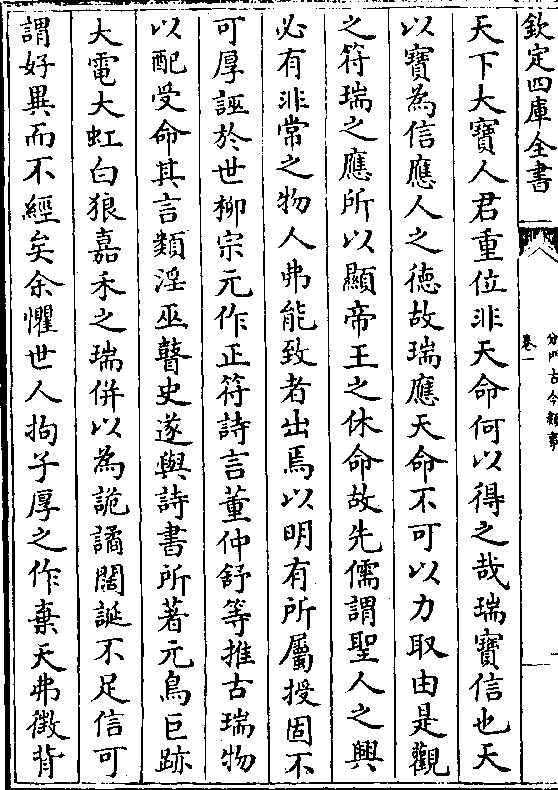 欽定四庫全書
分門古今類事
卷一
天下大寶人君重位非天命何以得之哉瑞寶信也天
以寶為信應人之德故瑞應天命不可以力取由是觀
之符瑞之應所以顯帝王之休命故先儒謂聖人之興
必有非常之物人弗能致者出焉以明有所屬授固不
可厚誣於世柳宗元作正符詩言董仲舒等推古瑞物
以配受命其言類淫巫瞽史遂與詩書所著元鳥巨跡
大電大虹白狼嘉禾之瑞併以為詭譎闊誕不足信可
謂好異而不經矣余懼世人拘子厚之作棄天弗徵背